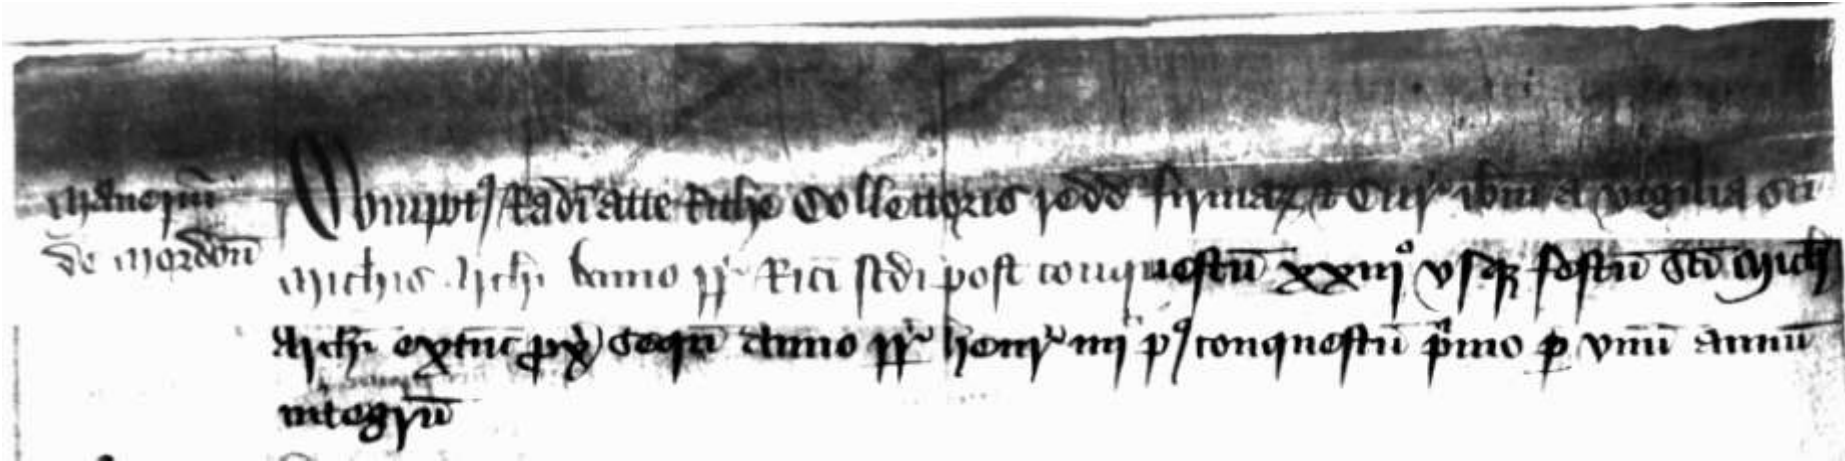 Maneriū
de Mordoñ
Compot9 Radi atte Rithe Collectoris redd firmaꝝ ⁊ Cur ibm a vigilia sci
Michis Archi anno rr Rici scdi post conquestū xxiijº vsqȝ festū Sci Mich
Archi extūc px sequ Anno rr Henr iiij p9 conquestū p'mo ꝑ vnū annū
integrū